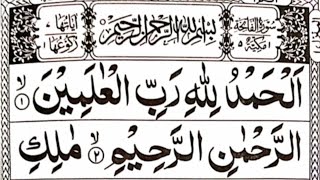 سورة الفاتحة مكية
بسم الله الرحمن الرحيم
آياتها ركوعها
اَلْحَمْدُ لِلّٰهِ رَبِّ الْعٰلَمِيْنَ ۙ‏﴿۱﴾
الرَّحْمٰنِ الرَّحِيْمِ ۙ‏﴿۲﴾ مٰلِكِ